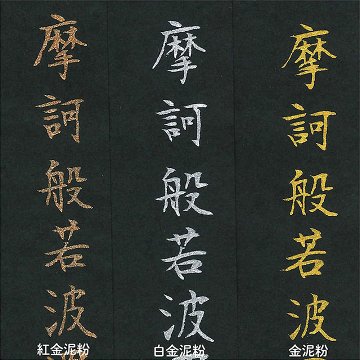 摩訶般若波
紅金泥粉
摩訶般若波
白金泥粉
摩訶般若波
金泥粉